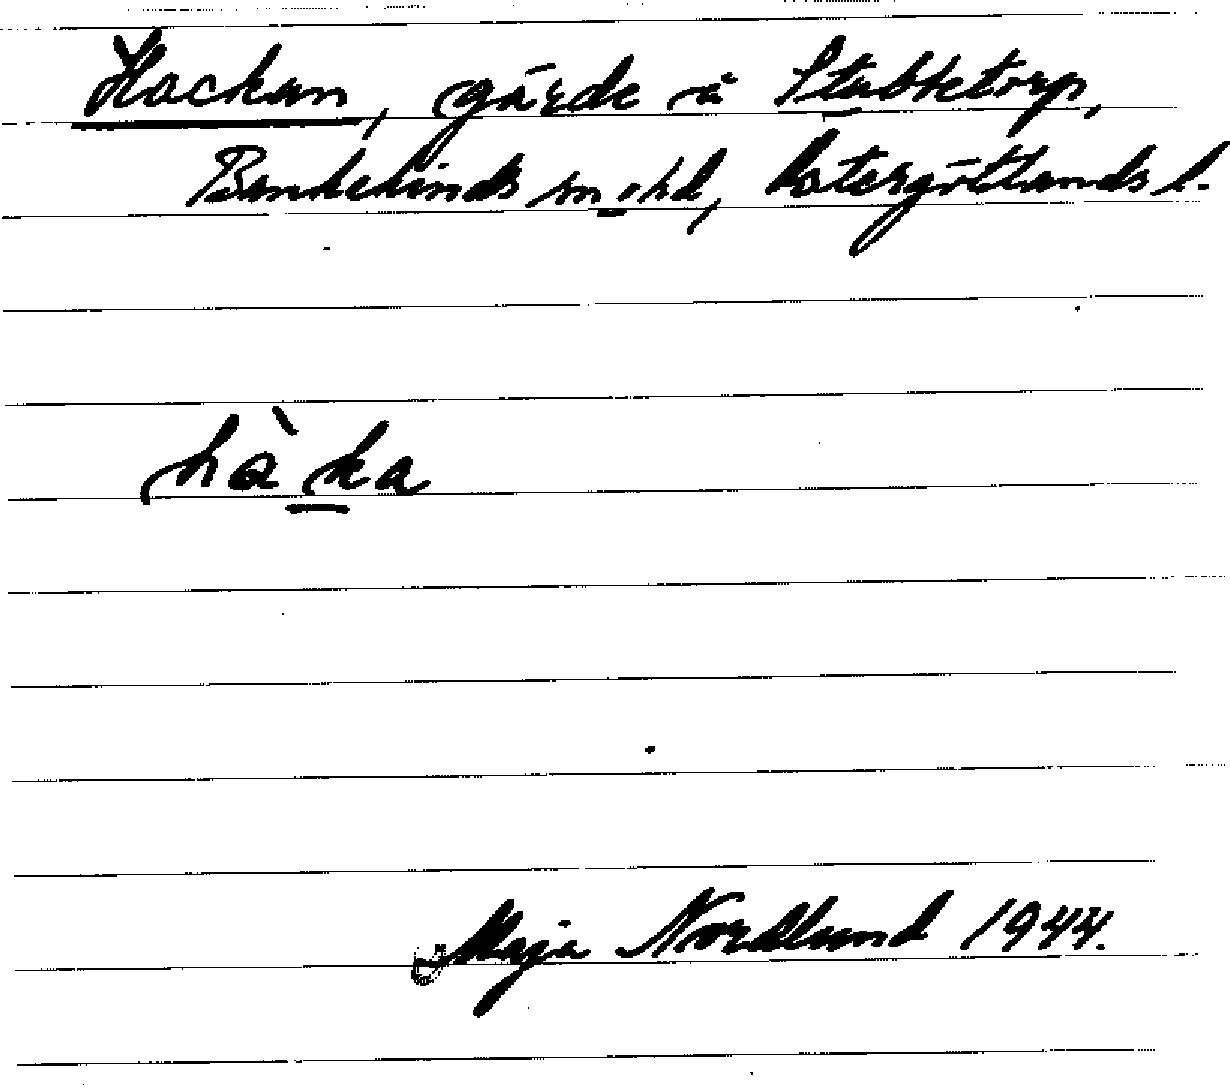 Hackan, gärde å Stubbetorp,
Bankekinds sn o hd, Östergötlands l.
hàka
Maja Nordlund 1944.